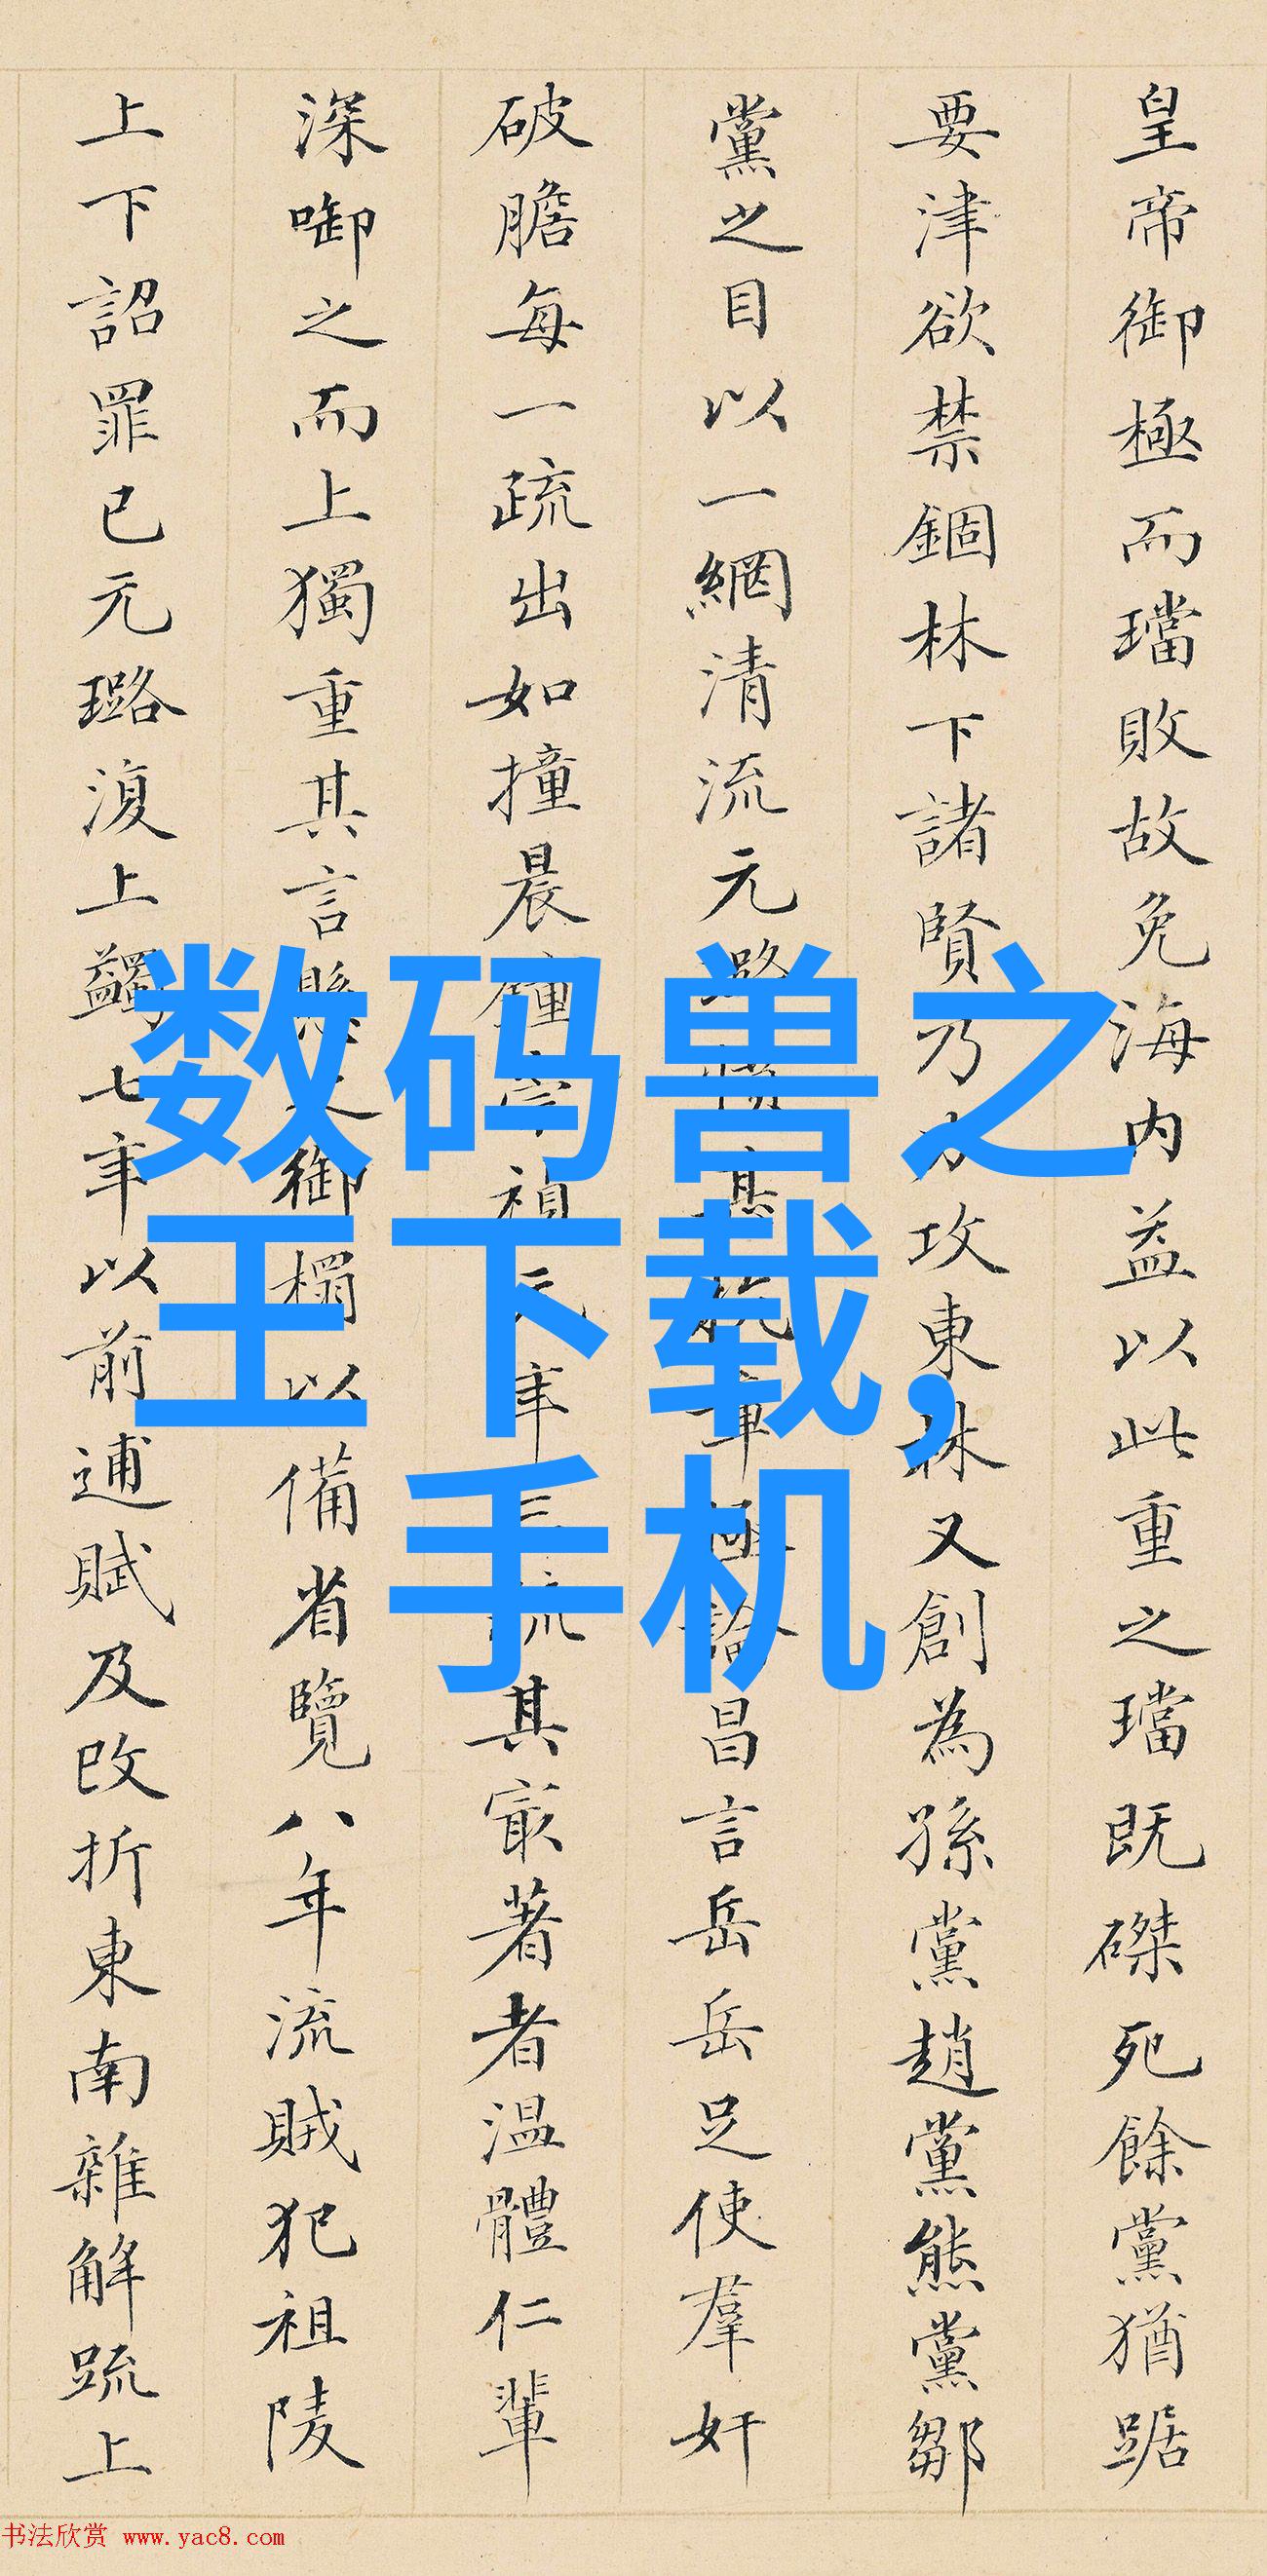 皇帝御極而璫敗故免海内益以此重之璫既磔死餘黨猶踞
要津欲禁錮林下諸賢乃力攻東林又創為孫黨趙黨熊黨鄒
黨之目以一網清流元璐極論昌言岳岳足使羣奸
破膽每一疏出如撞晨鐘其最著者溫體仁輩
深啣之而上獨重其言懸之御榻以備省覽八年流賊犯祖陵
上下詔罪已元璐復上蠲七年以前逋賦及改折東南雜解疏上
数码兽之
王下载,
手机
书法欣赏 www.yac8.com